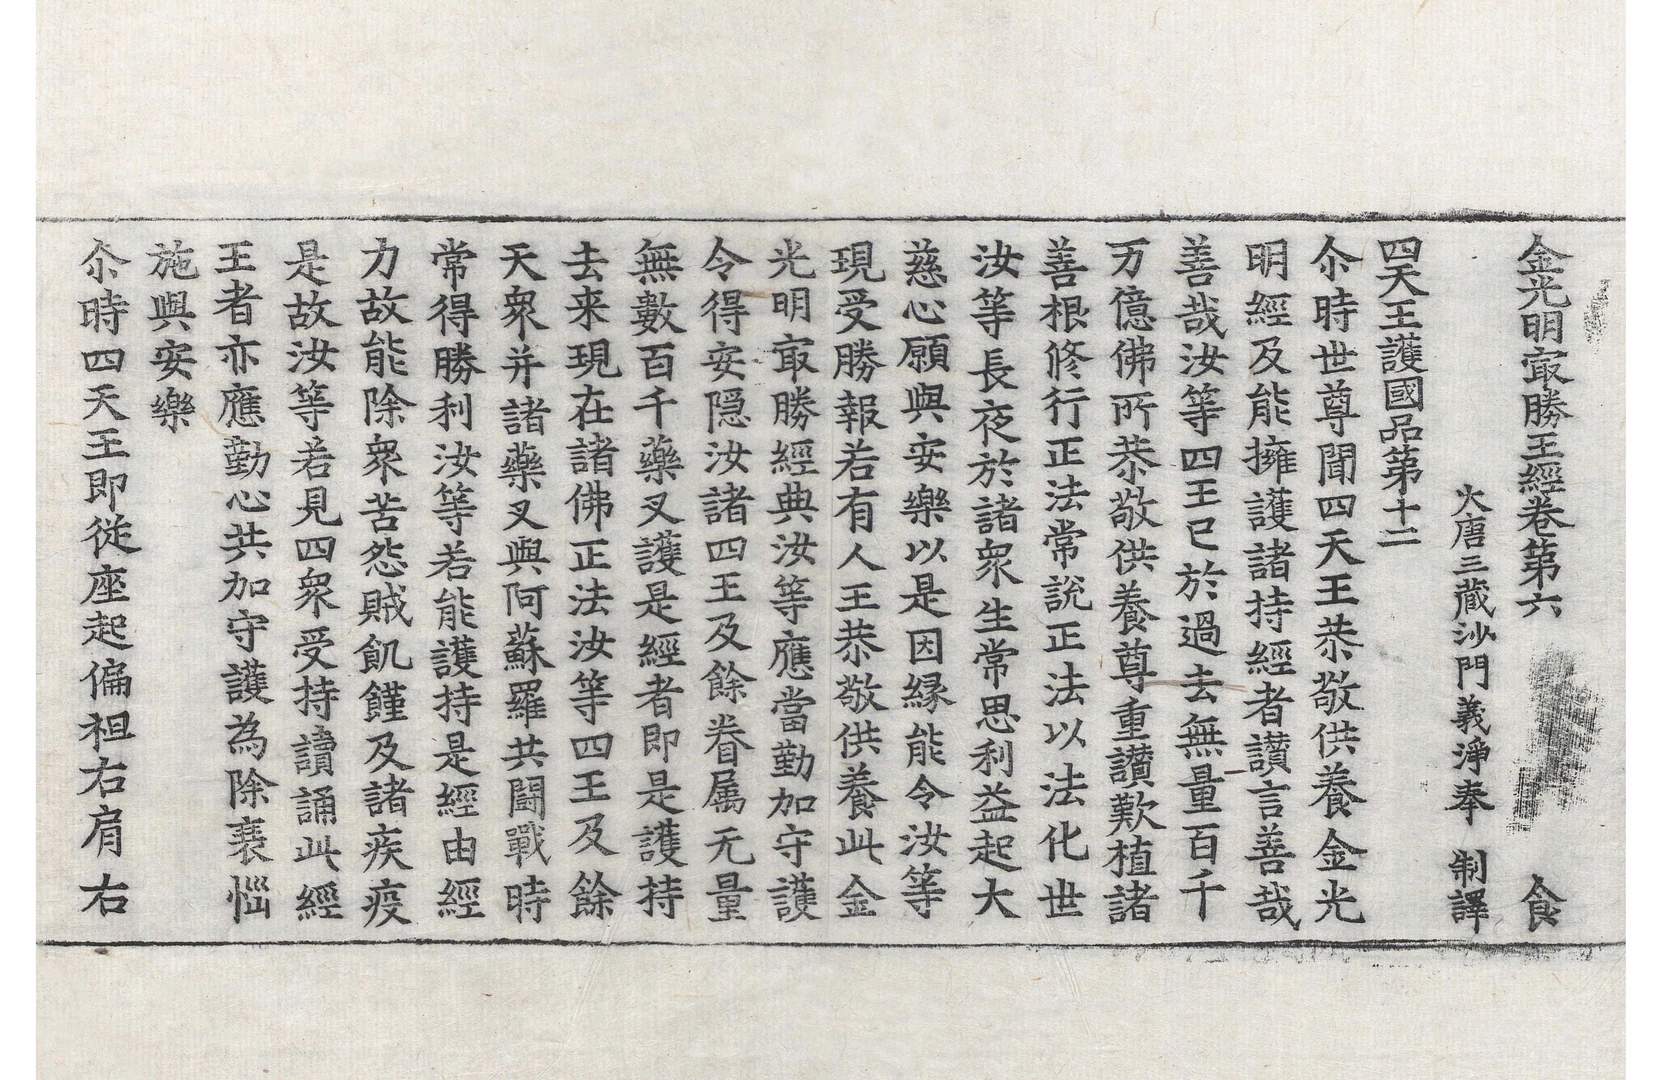 金光明㝡勝王經卷第六　食
大唐三藏沙門義淨奉　制譯
四天王護國品第十二
尒時世尊聞四天王恭敬供養金光
明經及能擁護諸持經者讃言善哉
善哉汝等四王已於過去無量百千
万億佛所恭敬供養尊重讃歎植諸
善根修行正法常說正法以法化世
汝等長夜於諸衆生常思利益起大
慈心願與安樂以是因縁能令汝等
現受勝報若有人王恭敬供養此金
光明㝡勝經典汝等應當勤加守護
令得安隱汝諸四王及餘眷属无量
無數百千藥叉護是經者即是護持
去来現在諸佛正法汝等四王及餘
天衆并諸藥叉與阿蘇羅共闘戰時
常得勝利汝等若能護持是經由經
力故能除衆苦怨賊飢饉及諸疾疫
是故汝等若見四衆受持讀誦此經
王者亦應勤心共加守護為除衰惱
施與安樂
尒時四天王即從座起偏袒右肩右